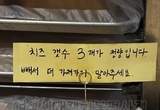 치즈 갯수 3개가 정량입니다
빼서 더 가져가지 말아주세요